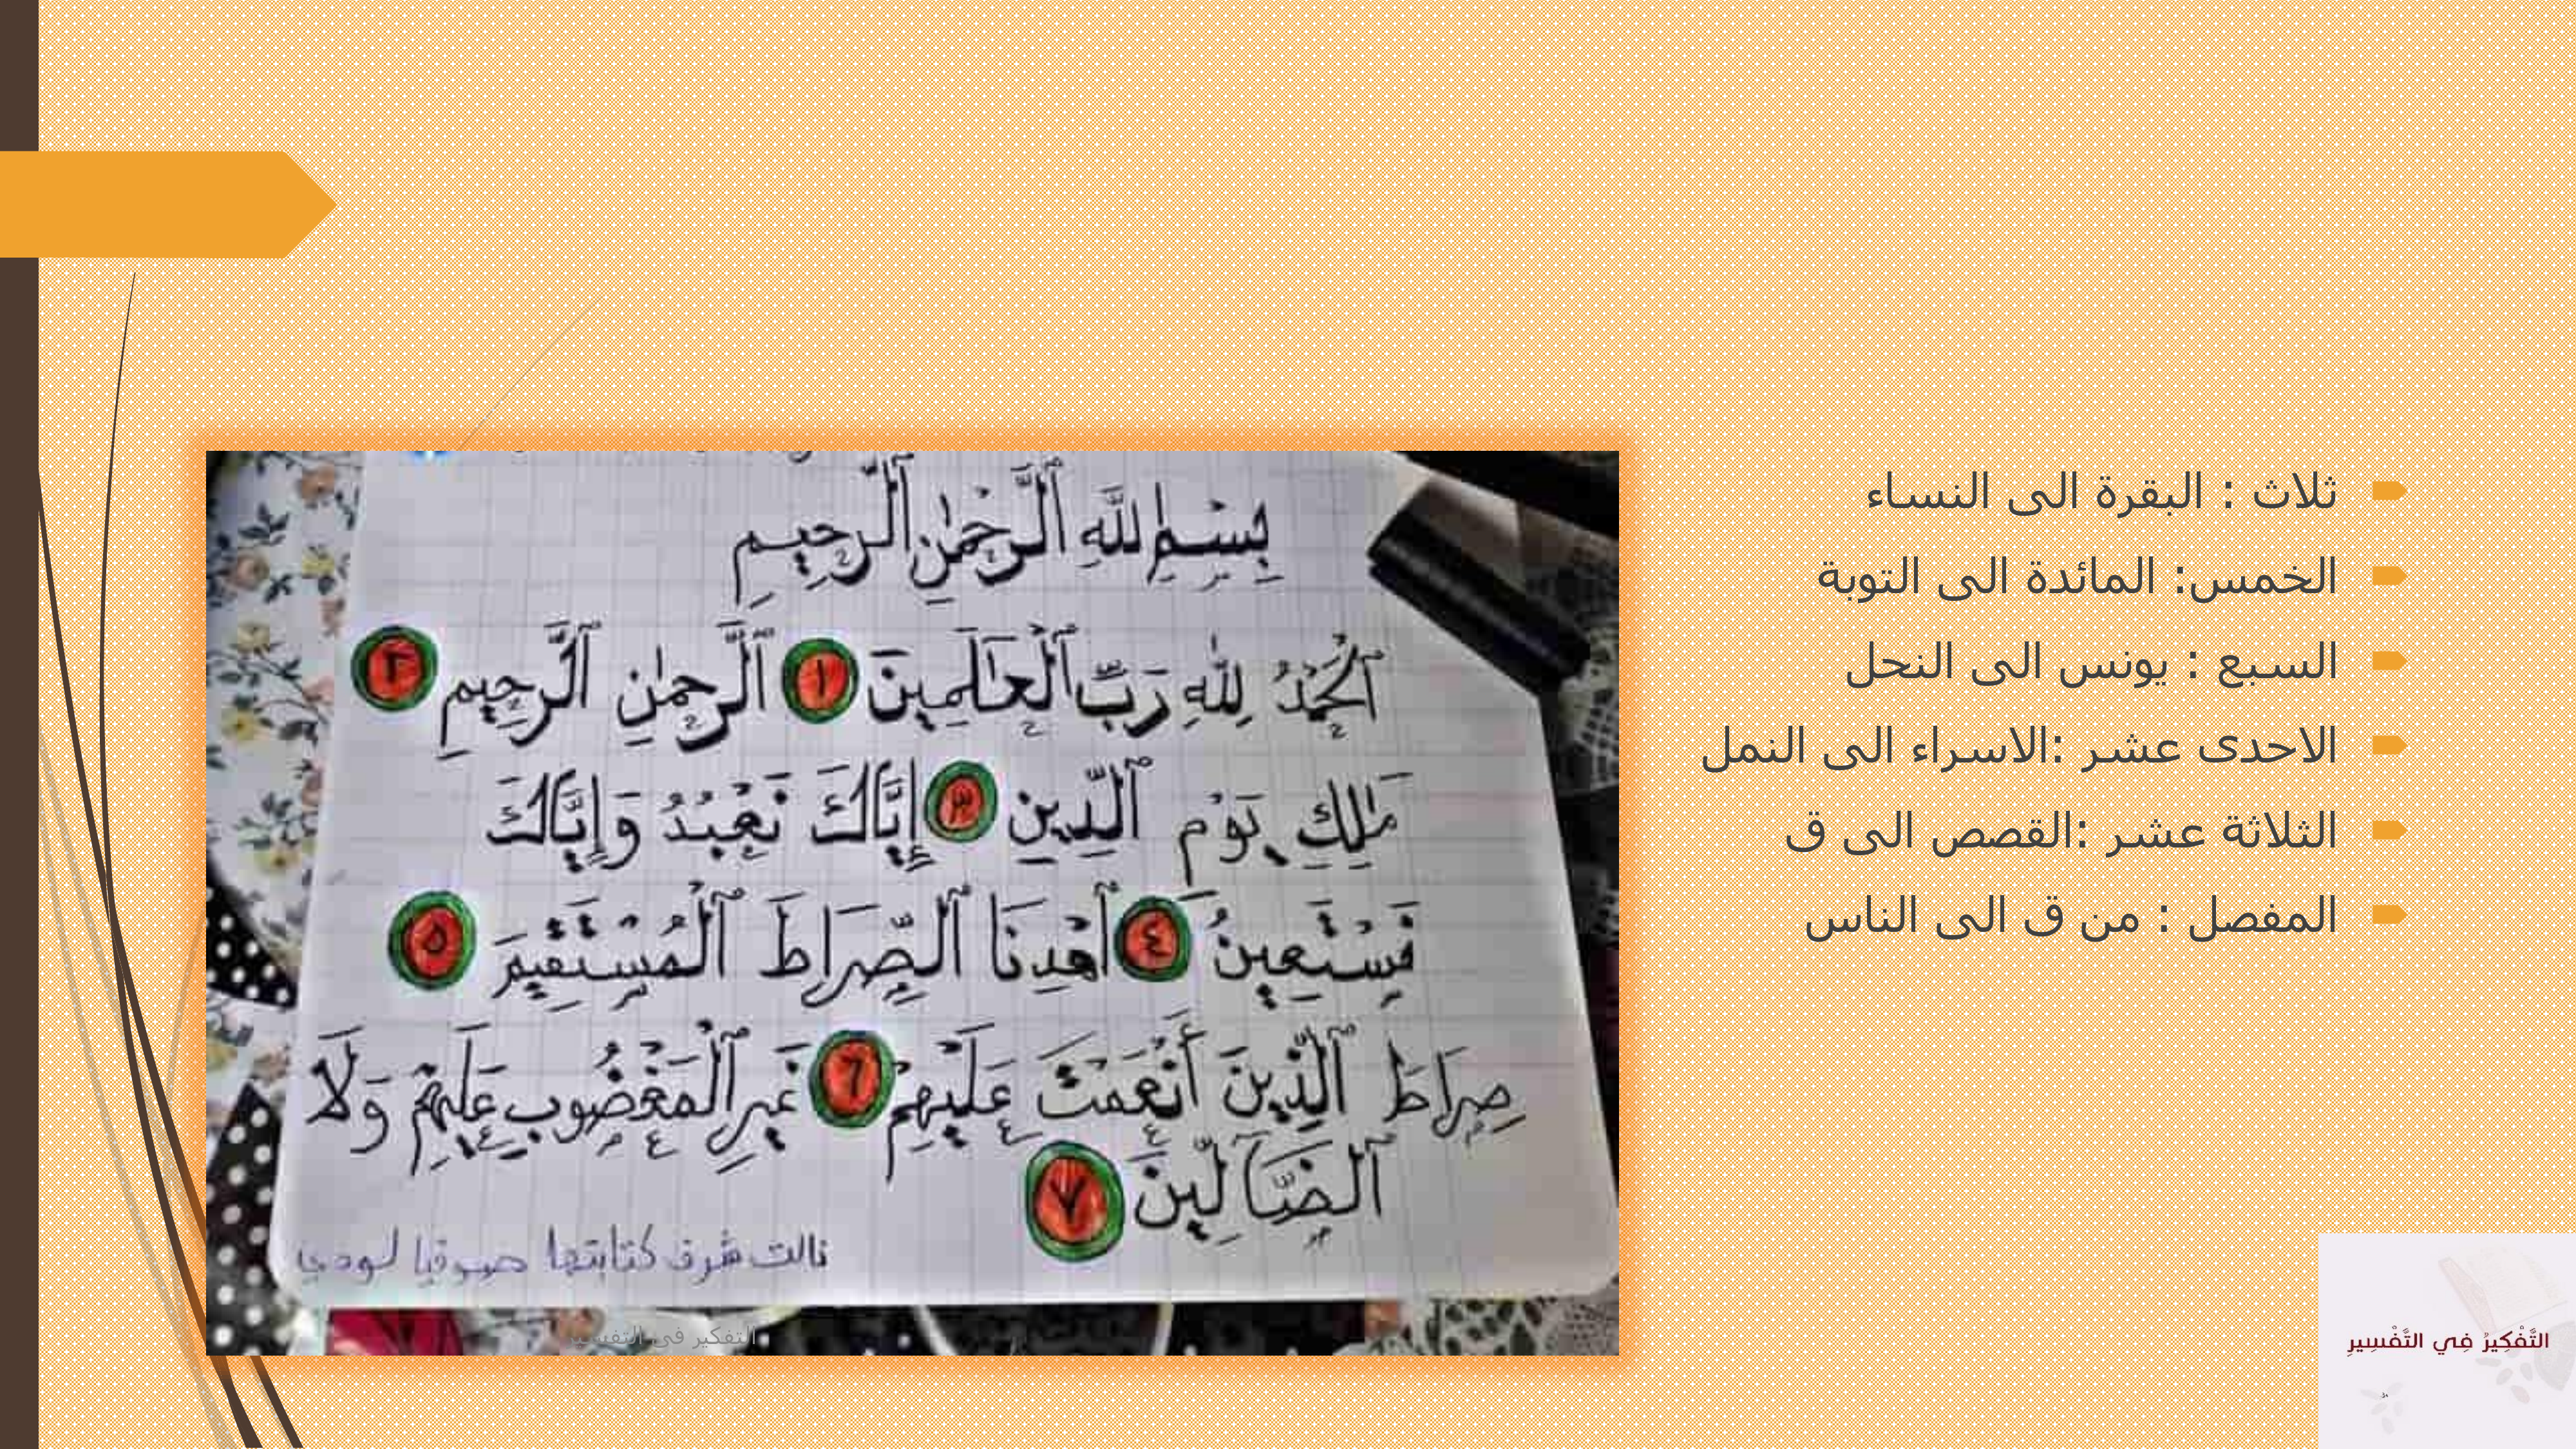 ثلاث : البقرة الى النساء
الخمس: المائدة الى التوبة
السبع : يونس الى النحل
الاحدى عشر :الاسراء الى النمل
الثلاثة عشر :القصص الى ق
المفصل : من ق الى الناس
بِسْمِ اللَّهِ الرَّحْمَٰنِ الرَّحِيمِ
ٱلْحَمْدُ لِلَّهِ رَبِّ ٱلْعَالَمِينَ ١ ٱلرَّحْمَٰنِ ٱلرَّحِيمِ ٢
مَٰلِكِ يَوْمِ ٱلدِّينِ ٣ إِيَّاكَ نَعْبُدُ وَإِيَّاكَ
نَسْتَعِينُ ٤ ٱهْدِنَا ٱلصِّرَاطَ ٱلْمُسْتَقِيمَ ٥
صِرَاطَ ٱلَّذِينَ أَنْعَمْتَ عَلَيْهِمْ ٦ غَيْرِ ٱلْمَغْضُوبِ عَلَيْهِمْ وَلَا
ٱلضَّآلِّينَ ٧
نالت شرف كتابتها صوفيا لودي
التفكير في التفسير
التَّفْكِيرُ فِي التَّفْسِيرِ